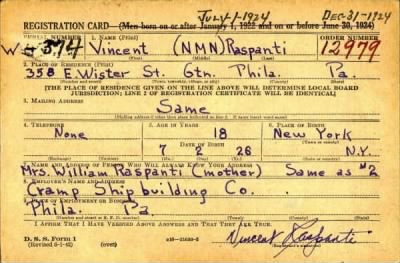 July-1-1924 Dec-31-1924
REGISTRATION CARD—(Men born on or after January 1, 1922 and on or before June 30, 1924)
SERIAL NUMBER 1. NAME (Print) ORDER NUMBER
W-374 Vincent (NMN) Raspanti 12979
(First) (Middle) (Last)
2. PLACE OF RESIDENCE (Print)
358 E. Wister St. Gtn. Phila. Pa.
(Number and street) (Town, township, village, or city) (County) (State)
[THE PLACE OF RESIDENCE GIVEN ON THE LINE ABOVE WILL DETERMINE LOCAL BOARD
JURISDICTION; LINE 2 OF REGISTRATION CERTIFICATE WILL BE IDENTICAL]
3. MAILING ADDRESS
Same
(Mailing address if other than place indicated on line 2. If same insert word same)
4. TELEPHONE 5. AGE IN YEARS 6. PLACE OF BIRTH
None 18 New York
DATE OF BIRTH (Town or county)
7 2 26 N.Y.
(Mo.) (Day) (Yr.) (State or country)
7. NAME AND ADDRESS OF PERSON WHO WILL ALWAYS KNOW YOUR ADDRESS
Mrs. William Raspanti (mother) Same as #2
8. EMPLOYER'S NAME AND ADDRESS
Cramp Shipbuilding Co.
9. PLACE OF EMPLOYMENT OR BUSINESS
Phila. Pa.
(Number and street or R. F. D. number) (Town) (County) (State)
I AFFIRM THAT I HAVE VERIFIED ABOVE ANSWERS AND THAT THEY ARE TRUE.
D. S. S. Form 1
(Revised 6-1-42) (over) Vincent Raspanti